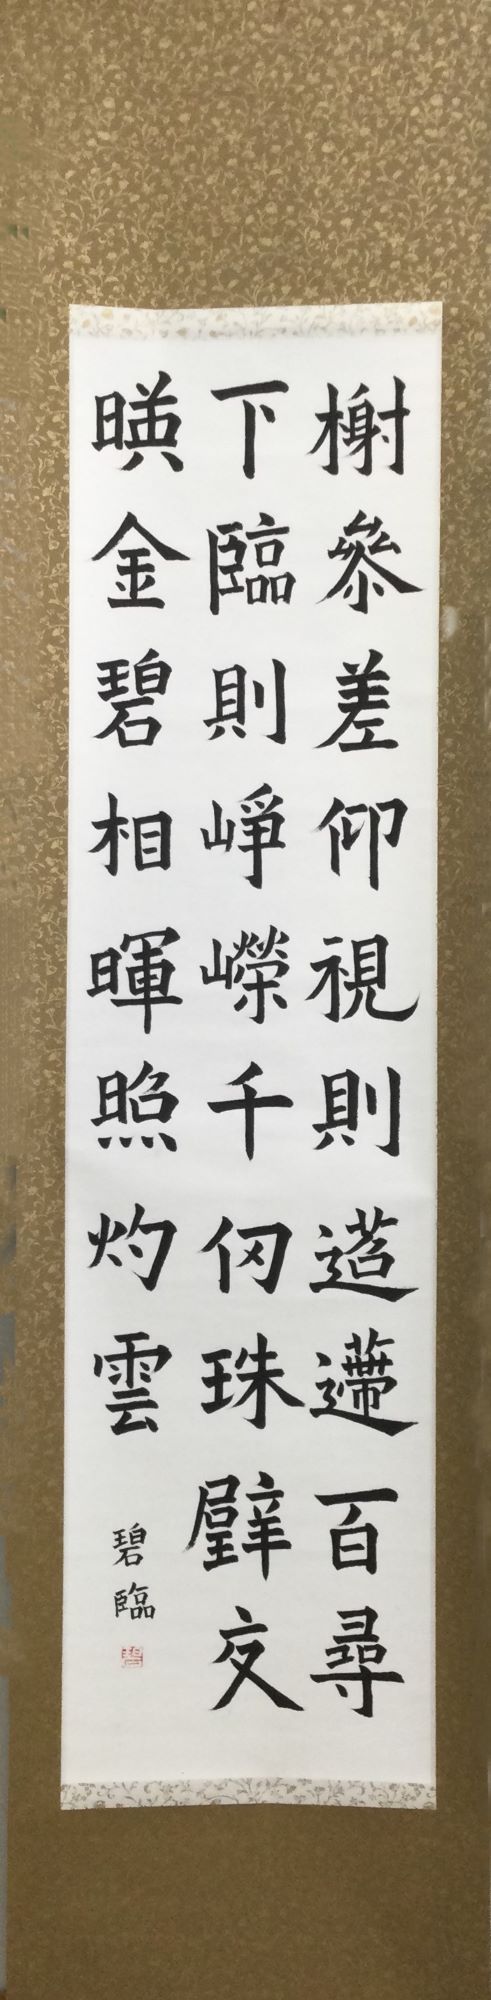 榭參差仰視則迢遰百尋
下臨則崢嶸千仞珠璧交
暎金碧相暉照灼雲
碧臨
碧